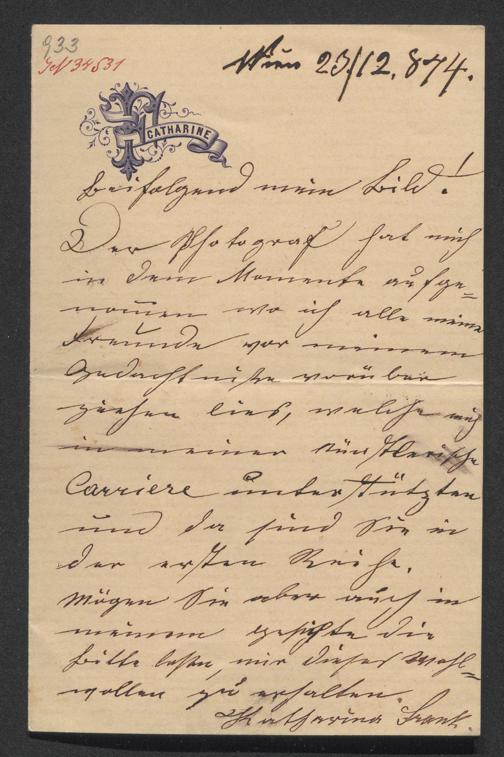 933
JN 34531
Wien 23/12. 874.
CATHARINE
Beifolgend mein Bild!
Der Photograf hat mich
in dem Momente aufge=
nom̅en wo ich alle meine
Freunde vor meinem
Gedächtniße vorüber
ziehen lies, welche mich
in meiner künstlerische
Carriere unterstützten
und da sind Sie in
der ersten Reihe.
Mögen Sie aber auch in
meinem Gesichte die
Bitte lesen, mir dieses Wohl=
wollen zu erhalten.
Katharina Frank.